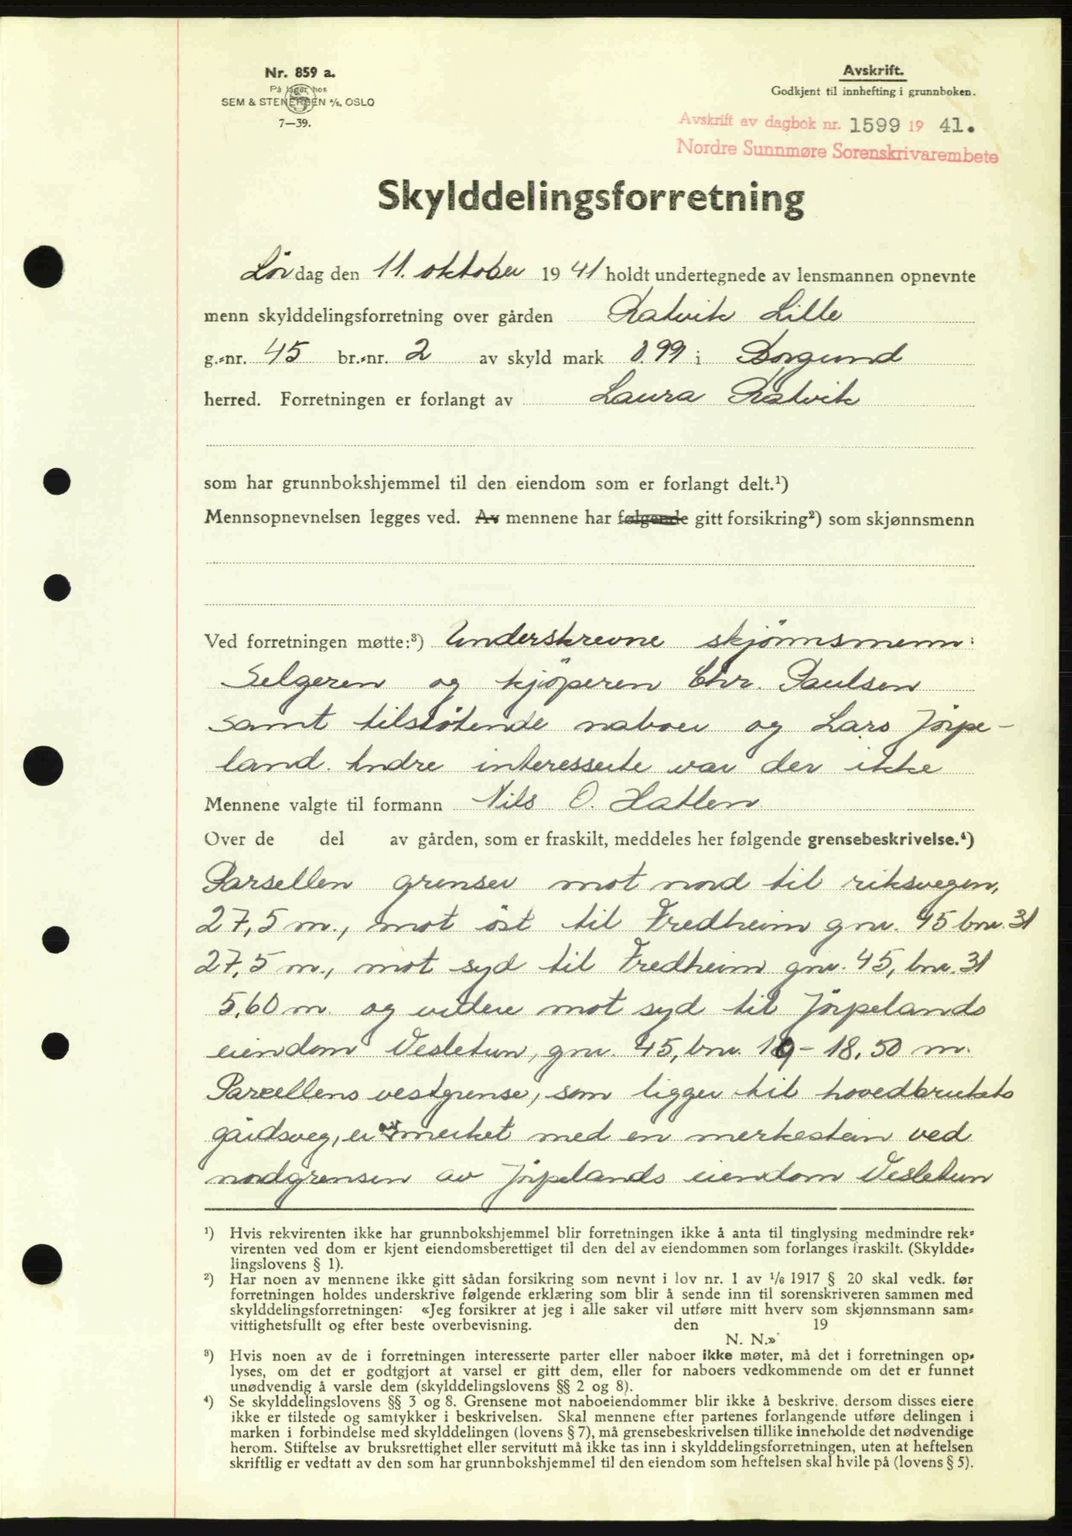 Nr. 859 a.
På lager hos
SEM & STENERSEN A/S, OSLO
7—39.
Avskrift.
Godkjent til innhefting i grunnboken.
Avskrift av dagbok nr. 1599 19 41.
Nordre Sunnmøre Sorenskrivarembete
Skylddelingsforretning
Lørdag den 11. oktober 1941 holdt undertegnede av lensmannen opnevnte
menn skylddelingsforretning over gården Ratvik Lille
g.-nr. 45 br.-nr. 2 av skyld mark 0.99 i Borgund
herred. Forretningen er forlangt av Laura Ratvik
som har grunnbokshjemmel til den eiendom som er forlangt delt.¹)
Mennsopnevnelsen legges ved. Av mennene har følgende gitt forsikring²) som skjønnsmenn
Ved forretningen møtte:³) Underskrevne skjønnsmenn:
Selgeren og kjøperen Chr. Paulsen
samt tilstøtende naboer og Lars Jørpe-
land. Andre interesserte var der ikke
Mennene valgte til formann Nils O. Hatlen
Over de del av gården, som er fraskilt, meddeles her følgende grensebeskrivelse.⁴)
Parsellen grenser mot nord til riksvegen,
27,5 m., mot øst til Fredheim gnr. 45 bnr. 31
27,5 m., mot syd til Fredheim gnr. 45, bnr. 31
5,60 m. og videre mot syd til Jørpelands
eiendom Vesletun, gnr. 45, bnr. 19 - 18,50 m.
Parcellens vestgrense, som ligger til hovedbrukets
gårdsveg, er avmerket med en merkestein ved
nordgrensen av Jørpelands eiendom Vesletun
¹) Hvis rekvirenten ikke har grunnbokshjemmel blir forretningen ikke å anta til tinglysing medmindre rek-
virenten ved dom er kjent eiendomsberettiget til den del av eiendommen som forlanges fraskilt. (Skyldde-
lingslovens § 1).
²) Har noen av mennene ikke gitt sådan forsikring som nevnt i lov nr. 1 av 1/6 1917 § 20 skal vedk. før
forretningen holdes underskrive følgende erklæring som blir å sende inn til sorenskriveren sammen med
skylddelingsforretningen: «Jeg forsikrer at jeg i alle saker vil utføre mitt hverv som skjønnsmann sam-
vittighetsfullt og efter beste overbevisning. den 19
N. N.»
³) Hvis noen av de i forretningen interesserte parter eller naboer ikke møter, må det i forretningen op-
lyses, om det er godtgjort at varsel er gitt dem, eller for naboers vedkommende om det er funnet
unødvendig å varsle dem (skylddelingslovens §§ 2 og 8).
⁴) Se skylddelingslovens §§ 3 og 8. Grensene mot naboeiendommer blir ikke å beskrive, dersom disses eiere
ikke er tilstede og samtykker i beskrivelsen. Skal mennene efter partenes forlangende utføre delingen i
marken i forbindelse med skylddelingen (lovens § 7), må grensebeskrivelsen tillike inneholde det nødvendige
herom. Stiftelse av bruksrettighet eller servitutt må ikke tas inn i skylddelingsforretningen, uten at heftelsen
skriftlig er vedtatt av den som har grunnbokshjemmel til den eiendom som heftelsen skal hvile på (lovens § 5).